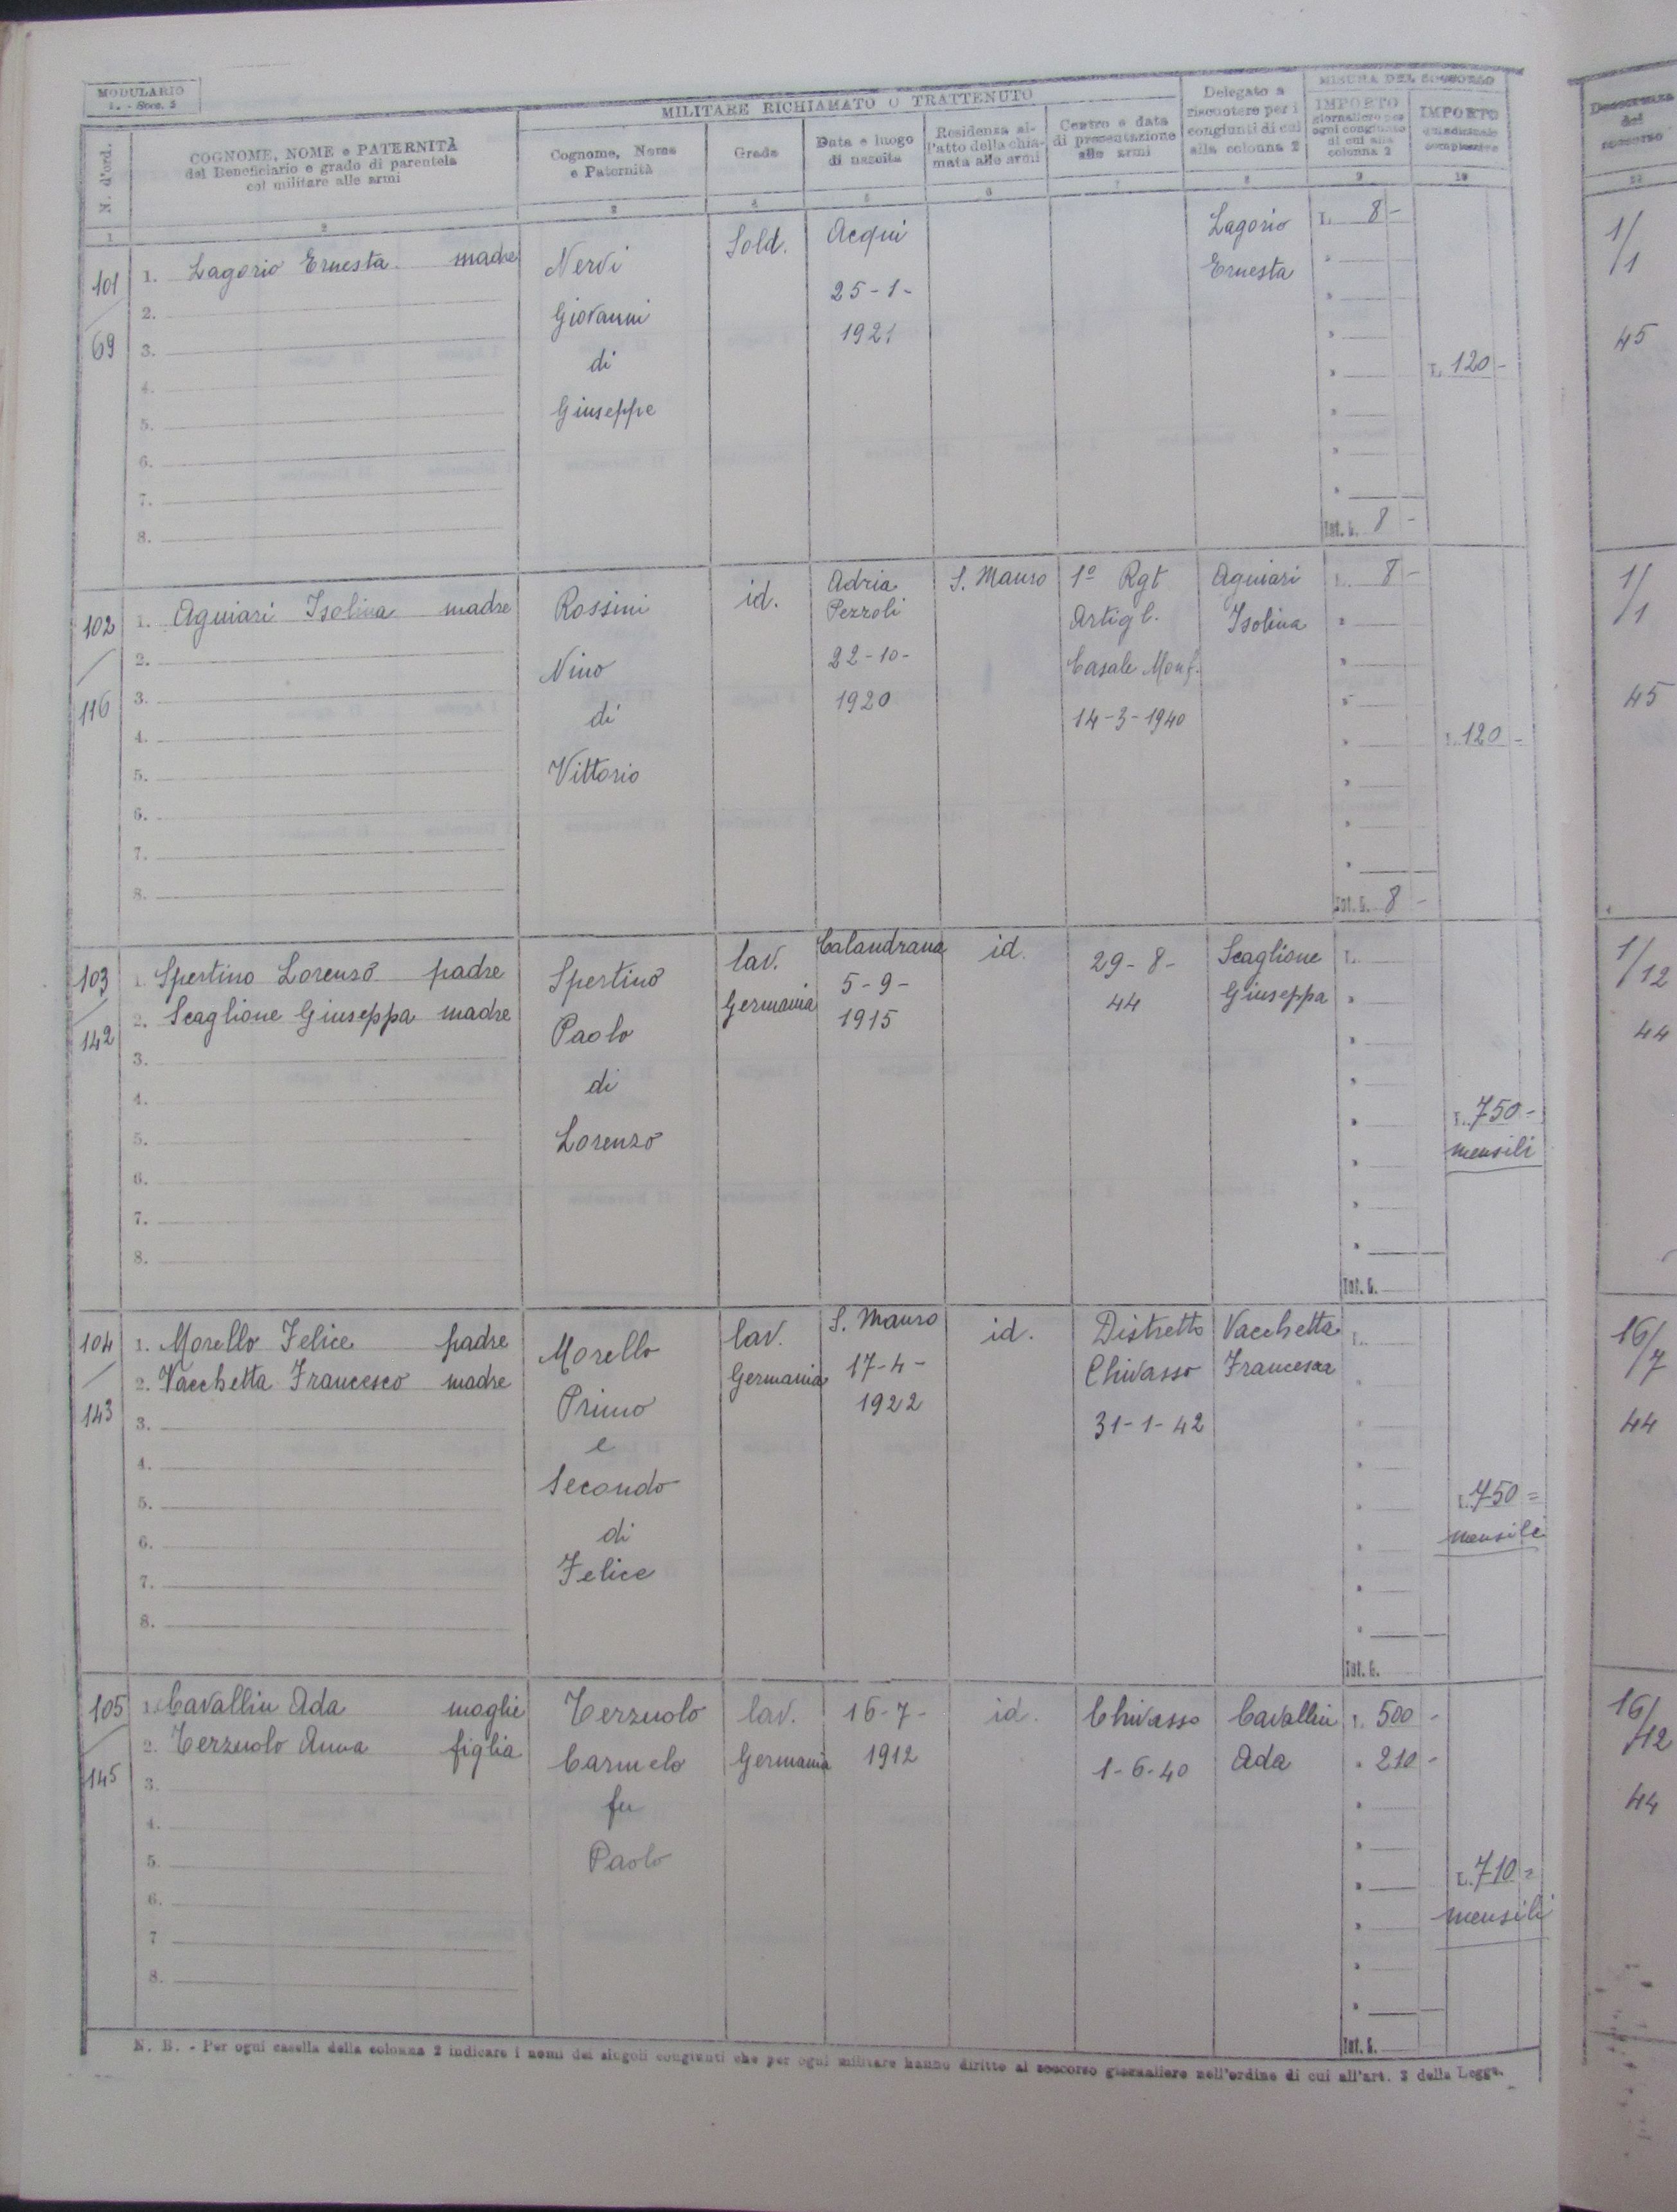 MODULARIO
1. - Socc. 3
N. d'ord.
COGNOME, NOME e PATERNITÀ
del Beneficiario e grado di parentela
col militare alle armi
MILITARE RICHIAMATO O TRATTENUTO
Cognome, Nome
e Paternità
Grado
Data e luogo
di nascita
Residenza al-
l'atto della chia-
mata alle armi
Centro e data
di presentazione
alle armi
Delegato a
riscuotere per i
congiunti di cui
alla colonna 2
MISURA DEL SOCCORSO
IMPORTO
giornaliero per
ogni congiunto
di cui alla
colonna 2
IMPORTO
quindicinale
complessivo
Decorrenza
del
soccorso
1 2 3 4 5 6 7 8 9 10
101
69
1. Lagorio Ernesta madre
2.
3.
4.
5.
6.
7.
8.
Nervi
Giovanni
di
Giuseppe
Sold.
Acqui
25-1-
1921
Lagorio
Ernesta
L. 8-
L. 120-
Tot. G. 8 -
1/1
45
102
116
1. Aguiari Isolina madre
2.
3.
4.
5.
6.
7.
8.
Rossini
Nino
di
Vittorio
id.
Adria
Pezzoli
22-10-
1920
S. Mauro
1º Rgt
Artigl.
Casale Monf.
14-3-1940
Aguiari
Isolina
L. 8-
L. 120-
Tot. G. 8-
1/1
45
103
142
1. Spertino Lorenzo padre
2. Scaglione Giuseppa madre
3.
4.
5.
6.
7.
8.
Spertino
Paolo
di
Lorenzo
lav.
Germania
Calandrana
5-9-
1915
id.
29-8-
44
Scaglione
Giuseppa
L.
L. 750-
mensili
Tot. G.
1/12
44
104
143
1. Morello Felice padre
2. Vacchetta Francesco madre
3.
4.
5.
6.
7.
8.
Morello
Primo
e
Secondo
di
Felice
lav.
Germania
S. Mauro
17-4-
1922
id.
Distretto
Chivasso
31-1-42
Vacchetta
Francesca
L.
L. 750=
mensili
Tot. G.
16/7
44
105
145
1. Cavallin Ada moglie
2. Terzuolo Anna figlia
3.
4.
5.
6.
7
8.
Terzuolo
Carmelo
fu
Paolo
lav.
Germania
16-7-
1912
id.
Chivasso
1-6-40
Cavallin
Ada
L. 500-
" 210-
L. 710=
mensili
Tot. G.
16/12
44
N. B. - Per ogni casella della colonna 2 indicare i nomi dei singoli congiunti che per ogni militare hanno diritto al soccorso giornaliero nell'ordine di cui all'art. 3 della Legge.